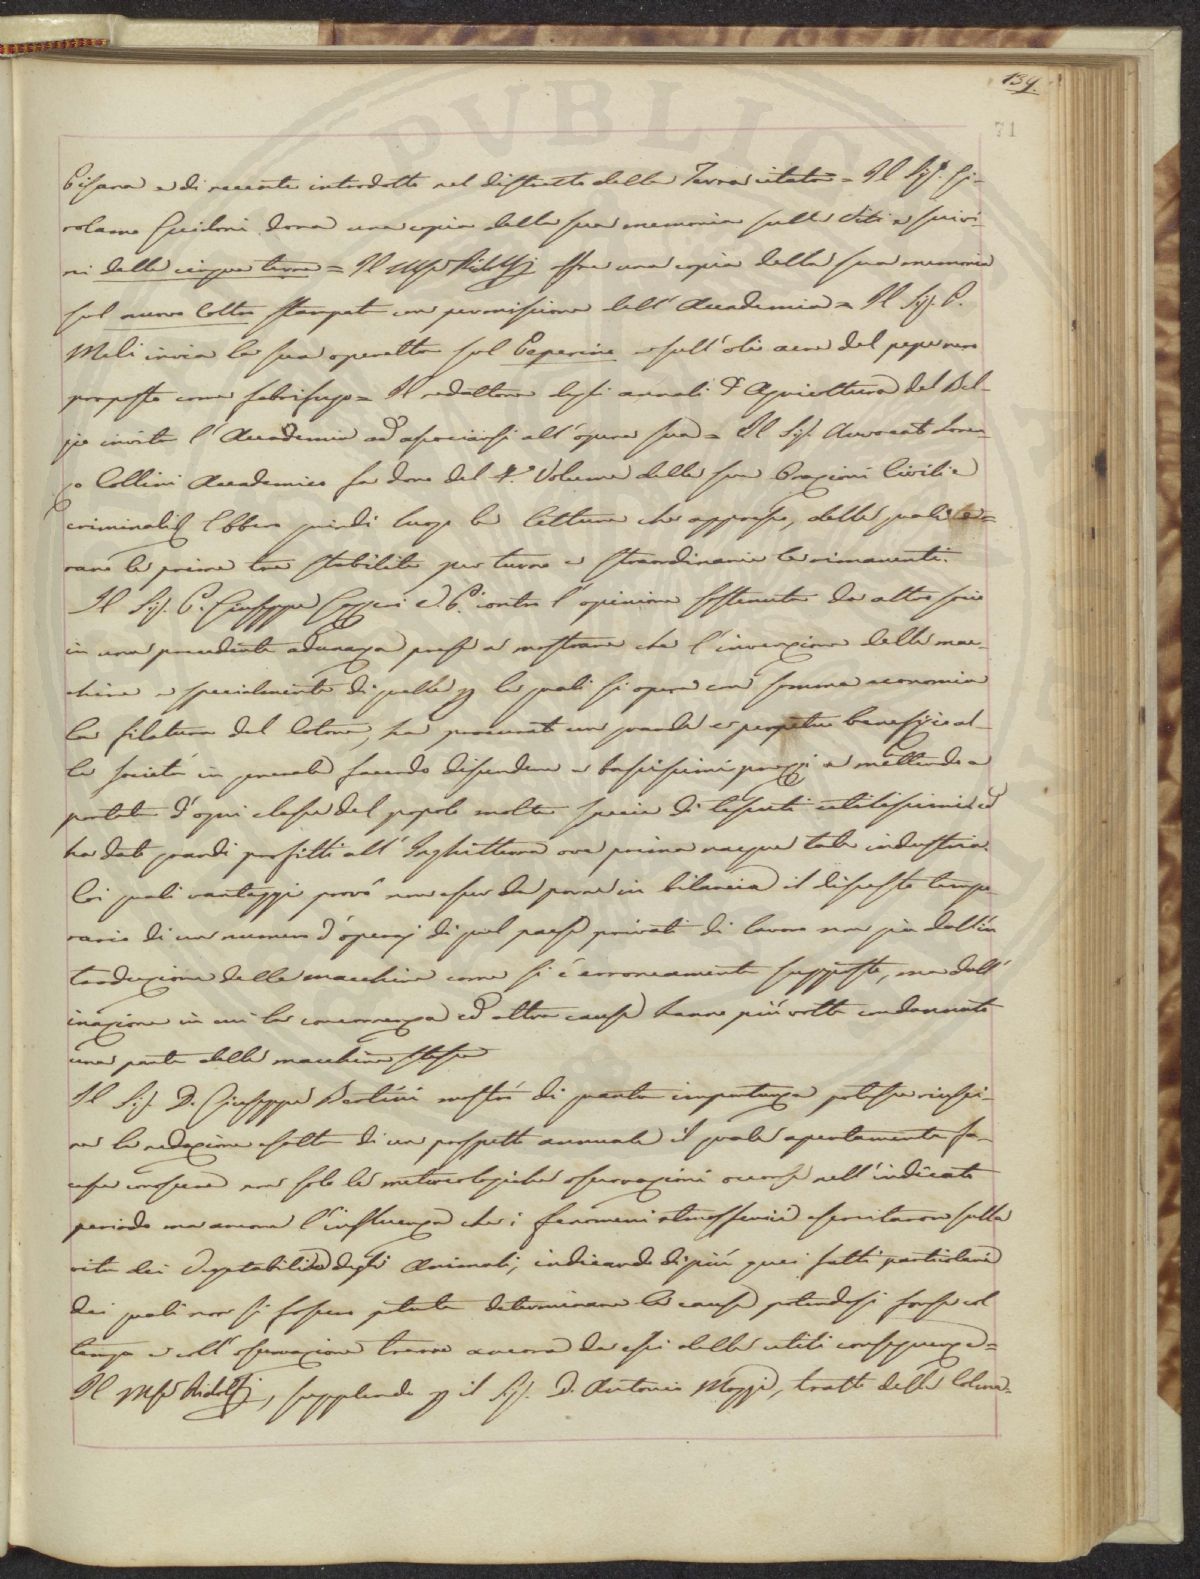 139.
71
PUBLIC
Pisana e di recente introdotto nel distretto della Terra citata = Il Sig. Gi-
rolamo Guidoni dona una copia della sua memoria sulle Viti e sui vi-
ni delle cinque terre = Il Mse Ridolfi offre una copia della sua memoria
sul nuovo Coltro stampata con permissione dell' Accademia = Il Sig. D.
Meli invia la sua operetta sul Peperino e sull' olio acre del pepe nero
proposto come febrifugo = Il redattore degli annali d' Agricoltura del Bel-
gio invita l' Accademia ad associarsi all' opera sua = Il Sig. Avvocato Loren-
zo Collini Accademico fa dono del 4.° Volume delle sue Orazioni Civili e
criminali. Ebbero quindi luogo le letture che appresso, delle quali e-
rano le prime tre stabilite per turno e straordinarie le rimanenti.
Il Sig. P. Giuseppe d. S. P. contro l' opinione sostenuta da altro socio
in una precedente adunanza prese a mostrare che l' invenzione delle mac-
chine e specialmente di quelle p le quali si opera con somma economia
la filatura del Cotone, ha procurato un grande e perpetuo beneficio al-
la società in generale facendo discendere a bassissimi prezzi e mettendo a
portata d' ogni classe del popolo molte specie di tessuti utilissimi ed
ha dato grandi profitti all' Inghilterra ove prima nacque tale industria.
Coi quali vantaggi provò non esser da porre in bilancia il dissesto tempo-
rario di un numero d' operaj di quel paese privati di lavoro non già dall' in
troduzione delle macchine come si è erroneamente supposto, ma dall'
inazione in cui la concorrenza ed altre cause hanno più volte condannato
una parte delle macchine stesse
Il Sig. D. Giuseppe Bertini mostrò di quanta importanza potesse riusci-
re la redazione esatta di un prospetto annuale il quale apertamente fa-
cesse conoscere non solo le meteorologiche osservazioni occorse nell' indicato
periodo ma ancora l' influenza che i fenomeni atmosferici esercitarono sulla
vita dei Vegetabili e degli Animali, indicando di più quei fatti particolari
dei quali non si fossero potute determinare le cause potendosi forse col
tempo e coll' osservazione trarre ancora da essi delle utili conseguenze =
Il Mse Ridolfi, supplendo p il Sig. D. Antonio Mozzi, trattò delle Colma-